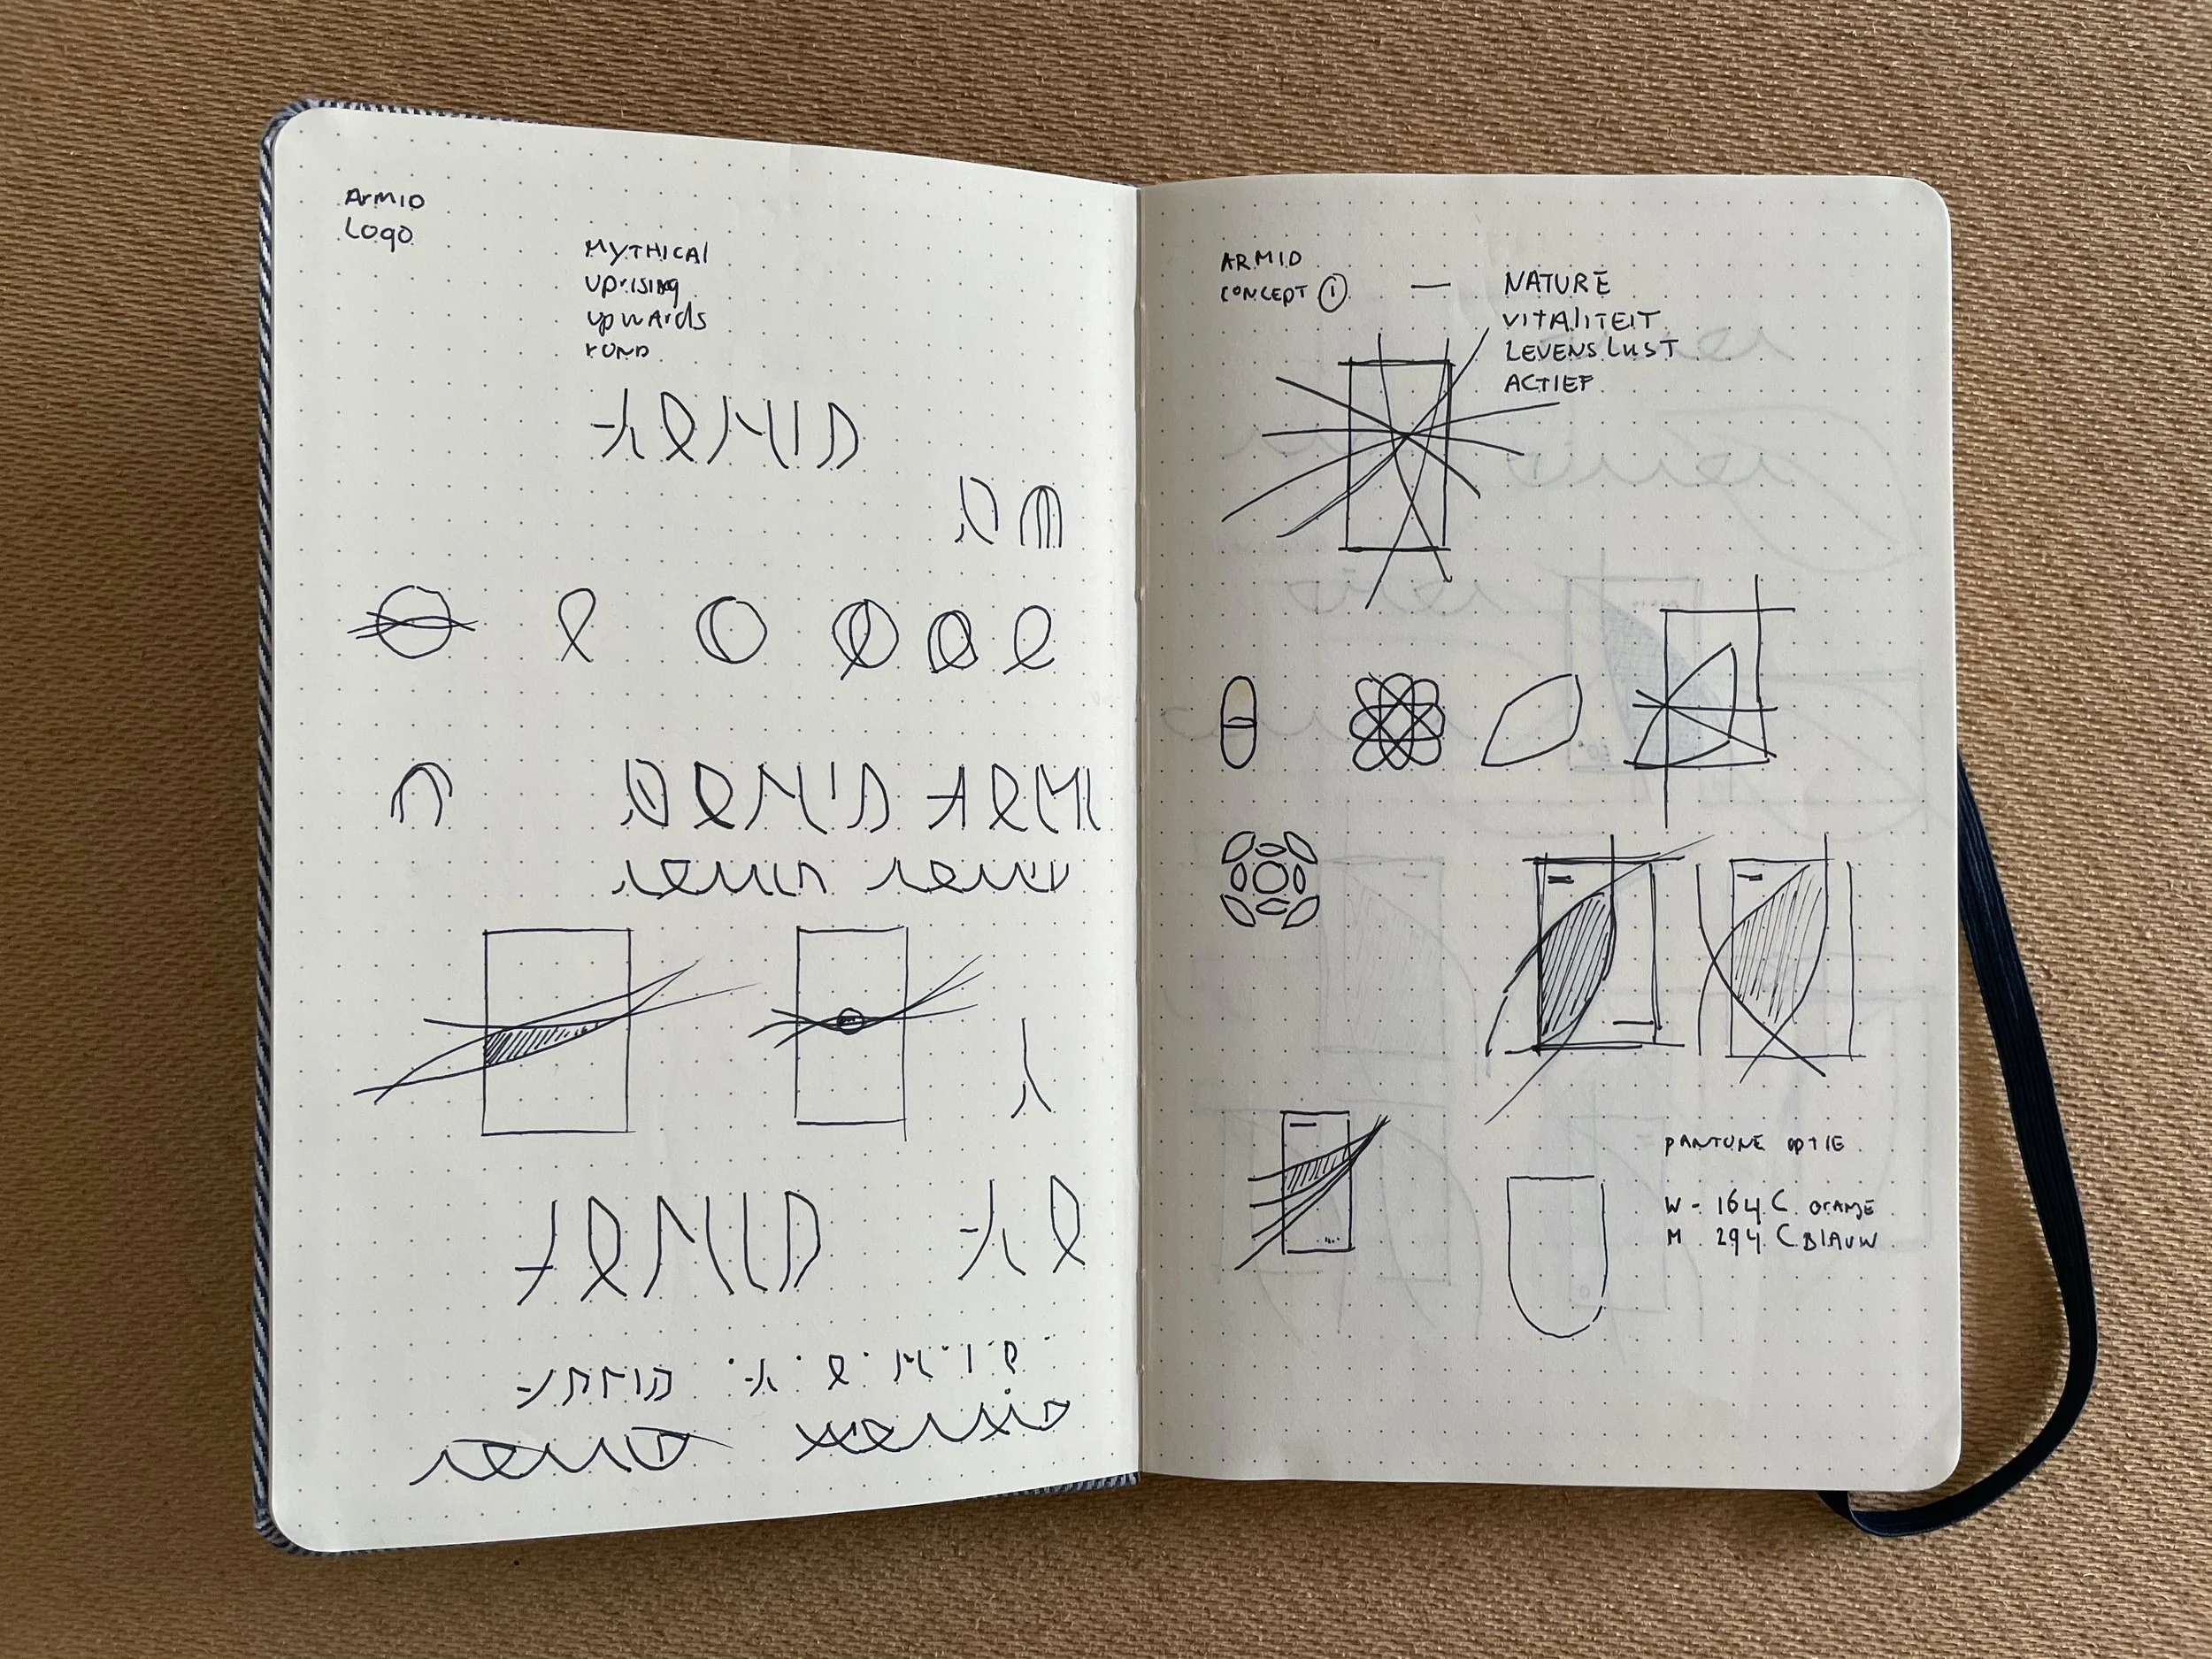 ArmID
Logo
MYTHICAl
uprising
upwards
rond
ARMID
ARMID
ARMI
ARMID
ARMID
CONCEPT 1 — NATURE
VITAlITEIT
LEVENSLUST
ACTIEF
PANTONE OPTIE
W - 164 C ORANJE
M 294 C BlAUW